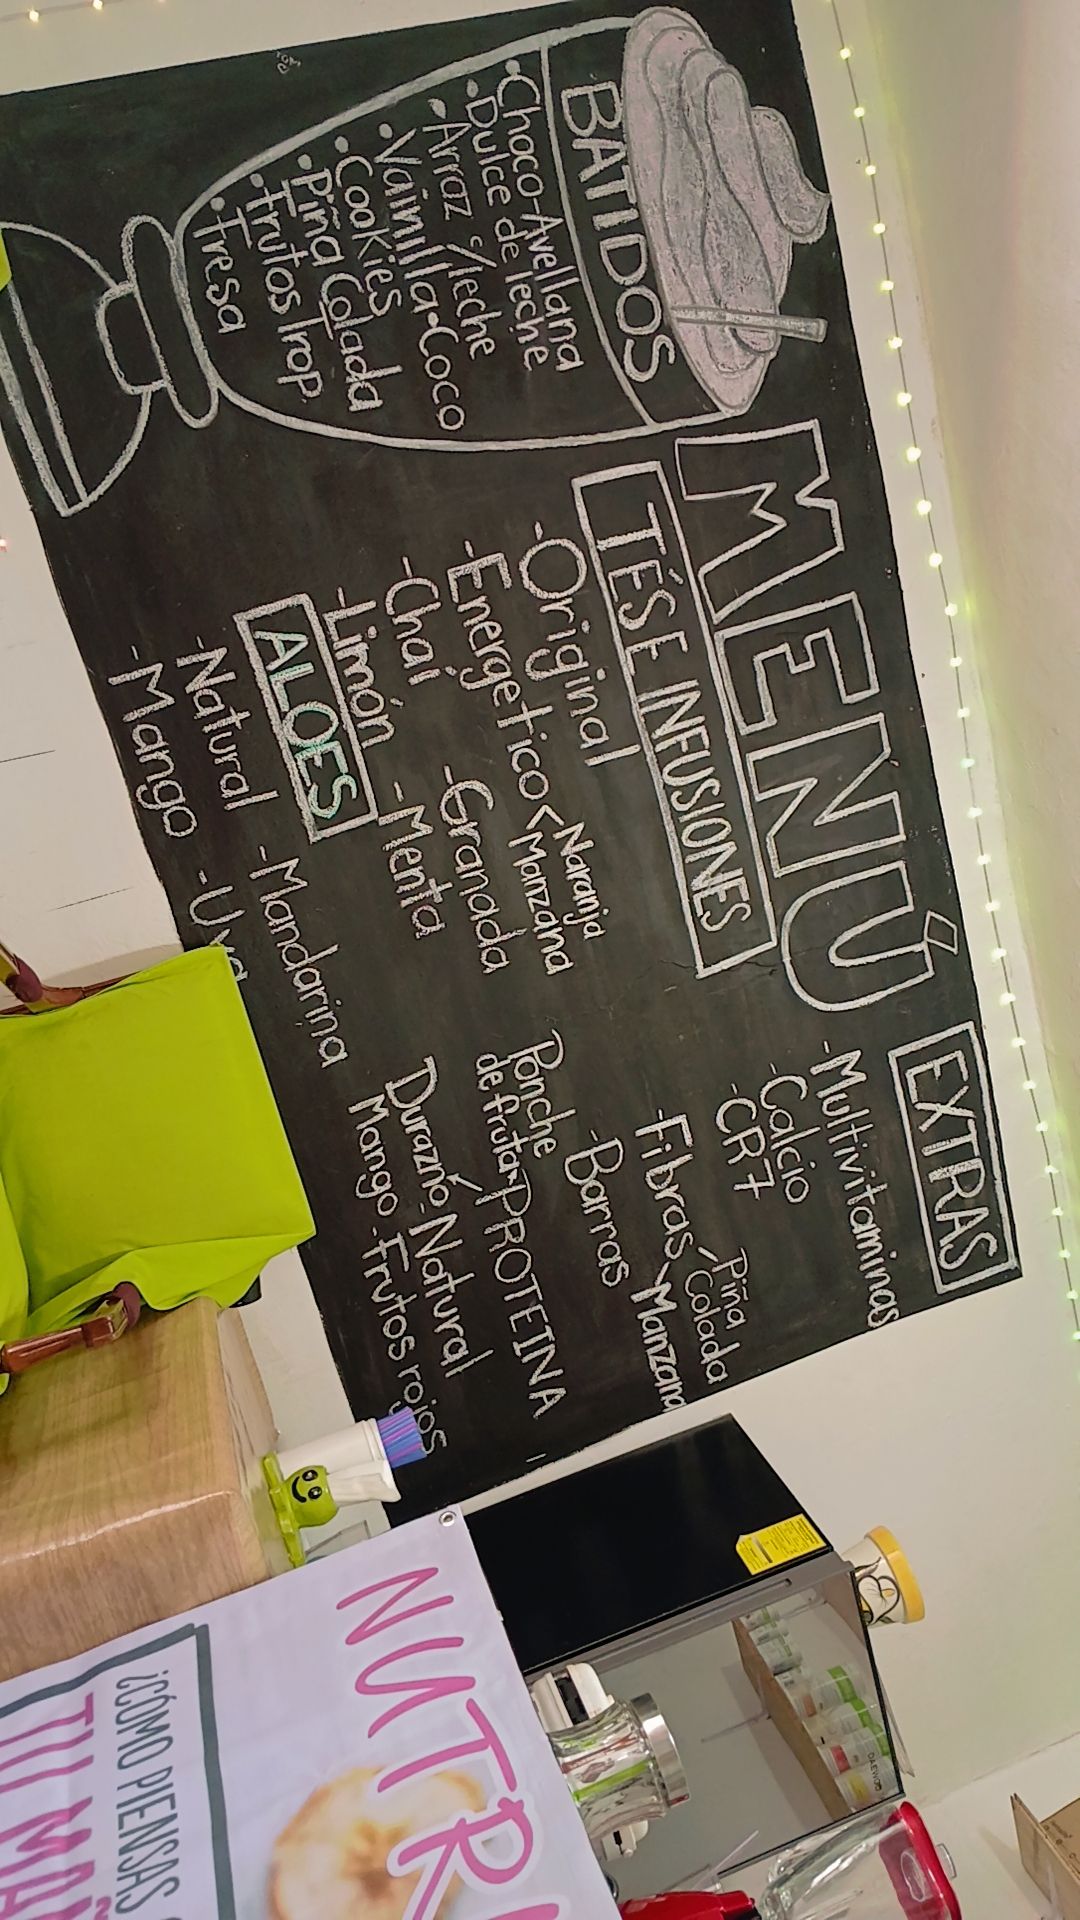 MENÚ
BATIDOS
•Choco-Avellana
•Dulce de leche
•Arroz c/leche
•Vainilla-Coco
•Cookies
•Piña Colada
•Frutos Trop.
•Fresa
TÉS E INFUSIONES
-Original
-Energetico<Naranja
Manzana
-Chai -Granada
-Limón -Menta
ALOES
-Natural -Mandarina
-Mango -Uva
EXTRAS
-Multivitaminas
-Calcio
-CR7
-Fibras<Piña Colada
Manzana
-Barras
Ponche
de frutas-PROTEINA
Durazno-Natural
Mango -Frutos rojos
NUTRI
¿CÓMO PIENSAS
TU
DAEWOO